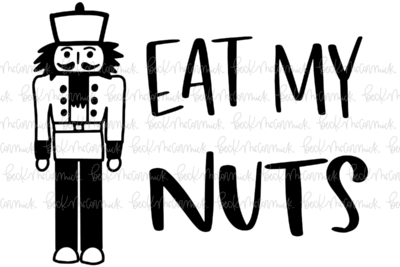 EAT MY
NUTS